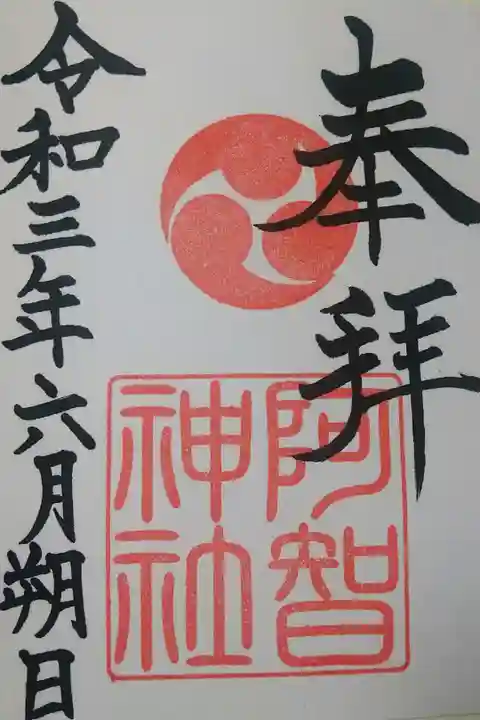 奉拝
阿智
神社
令和三年六月朔日